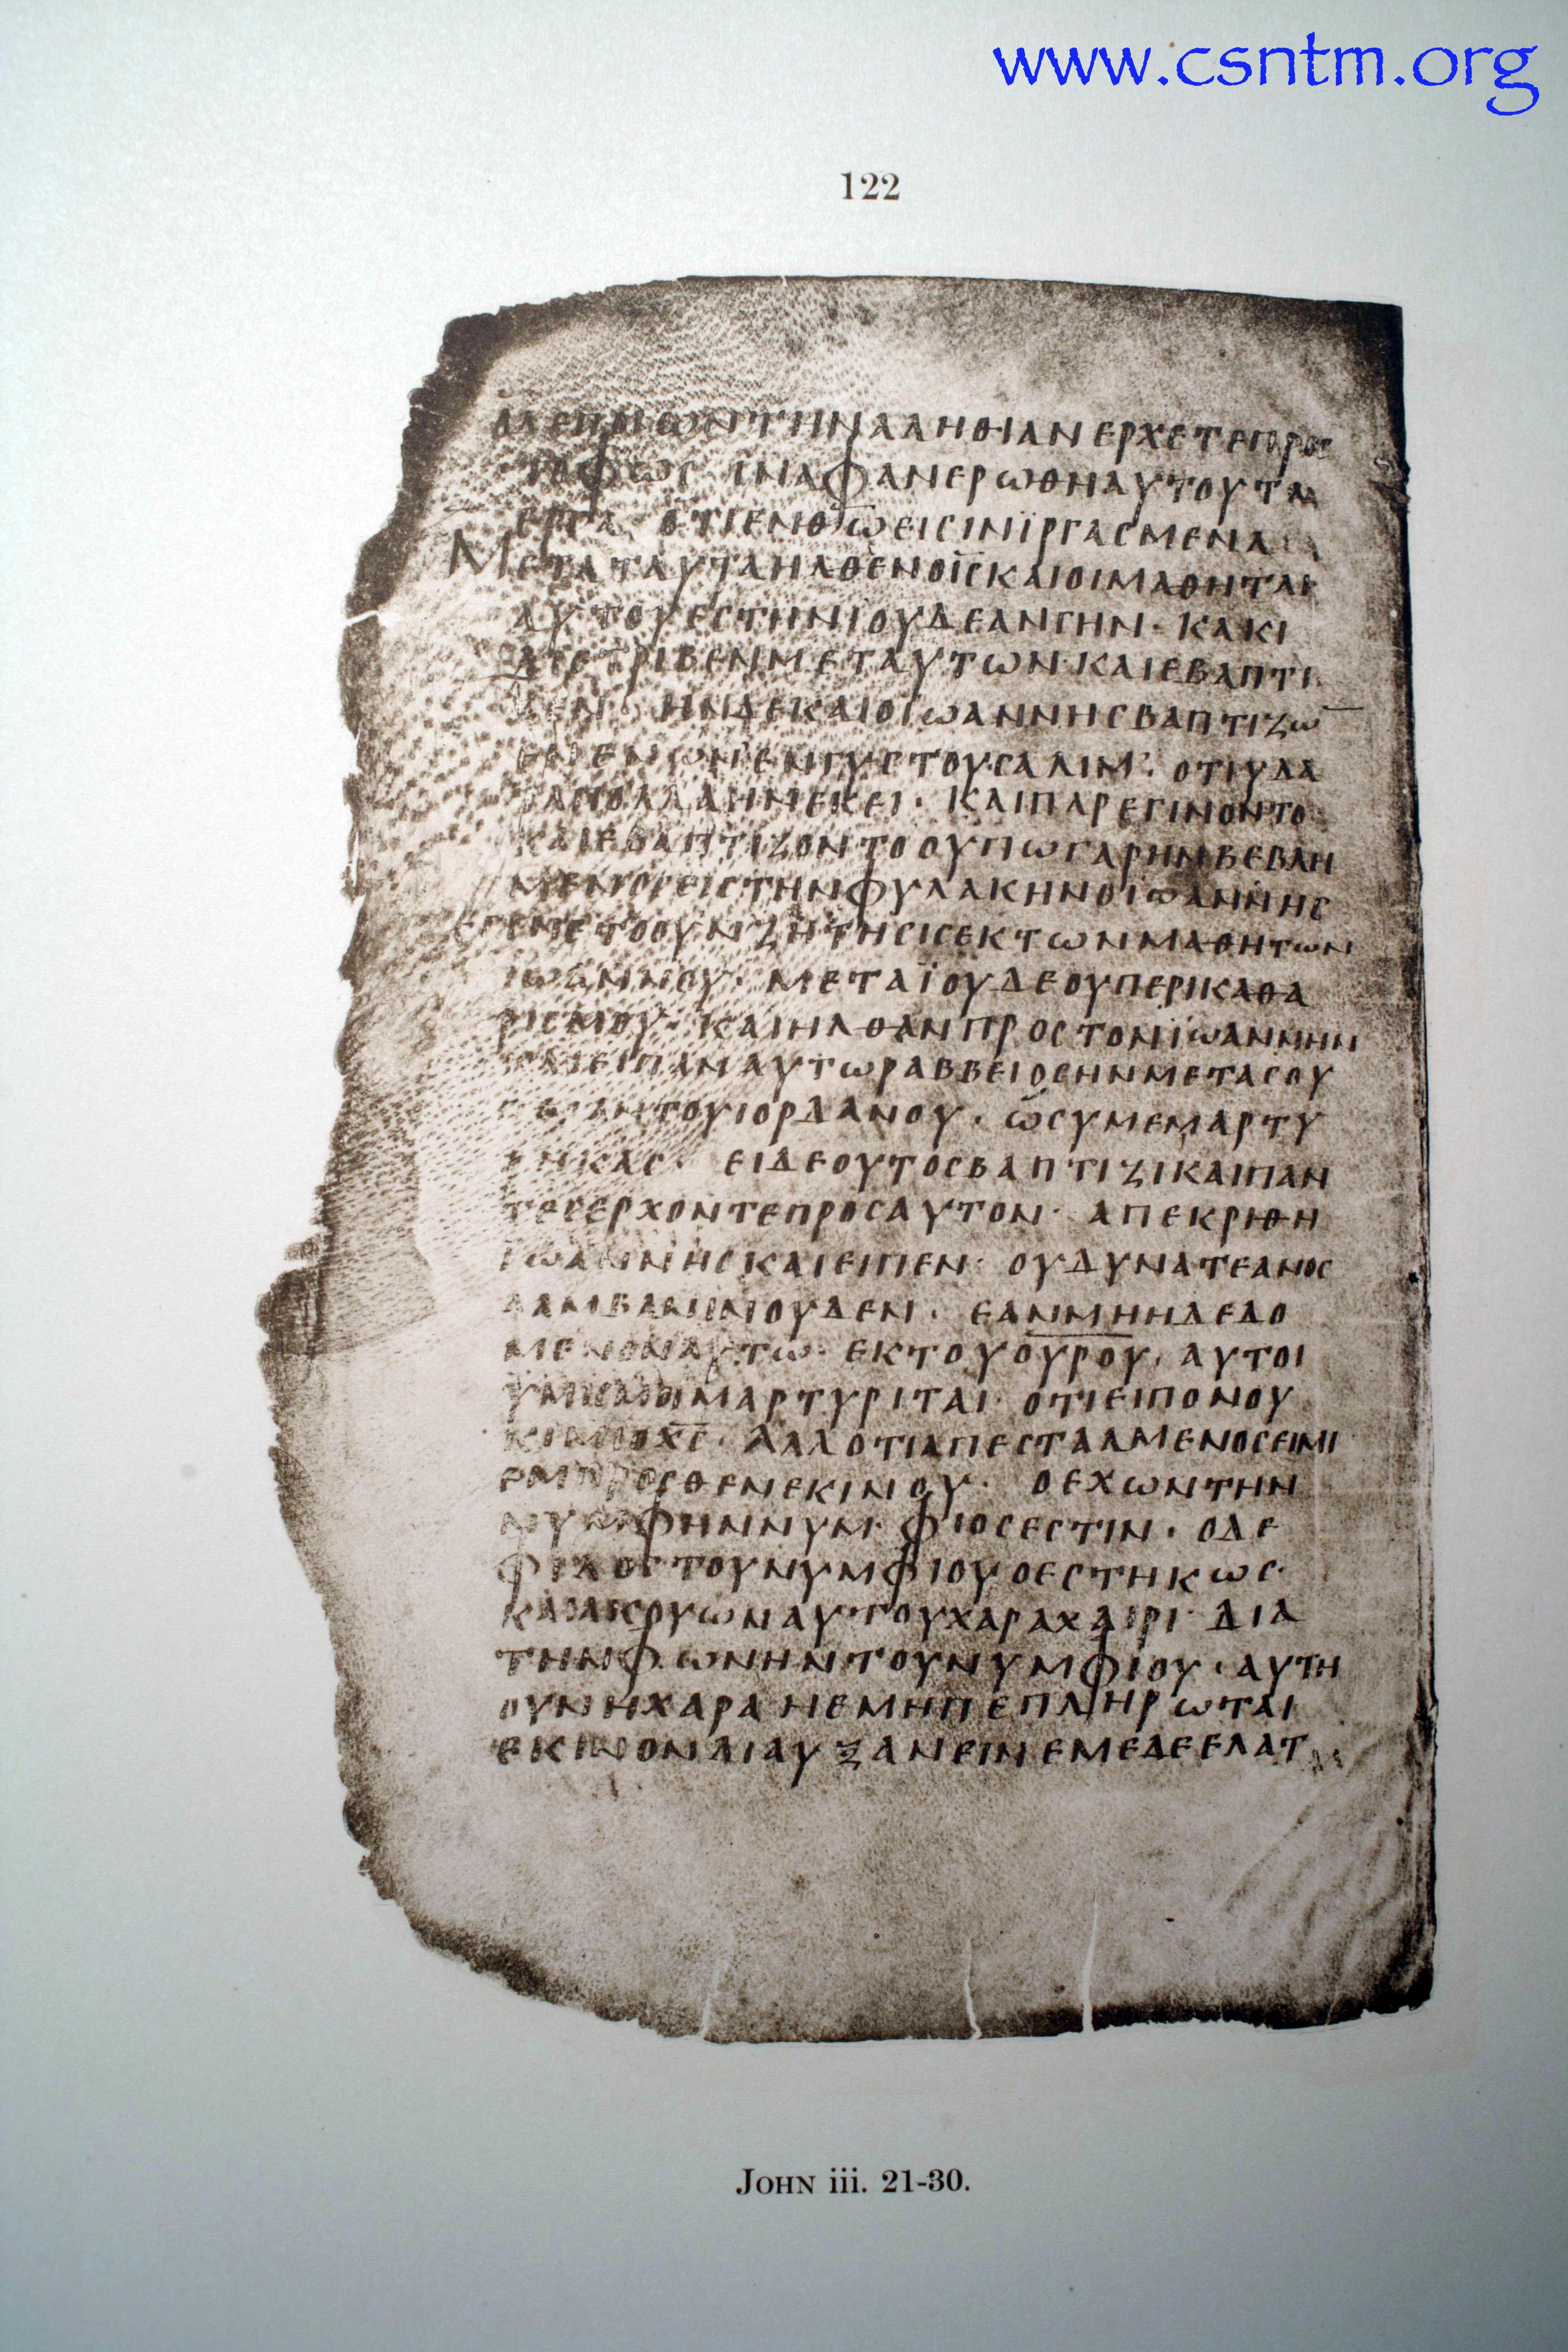 www.csntm.org
122
ΟΔΕΠΟΙΩΝΤΗΝΑΛΗΘΙΑΝΕΡΧΕΤΕΠΡΟΣ
ΤΟΦΩΣ ΙΝΑΦΑΝΕΡΩΘΗΑΥΤΟΥΤΑ
ΕΡΓΑ ΟΤΙΕΝΘ̅Ω̅ΕΙΣΙΝΙΡΓΑΣΜΕΝΑ
ΜΕΤΑΤΑΥΤΑΗΛΘΕΝΟΙ̅Σ̅ΚΑΙΟΙΜΑΘΗΤΑΙ
ΑΥΤΟΥΕΣΤΗΝΙΟΥΔΕΑΝΓΗΝ· ΚΑΚΙ
ΔΙΕΤΡΙΒΕΝΜΕΤΑΥΤΩΝΚΑΙΕΒΑΠΤΙ
ΖΕΝ· ΗΝΔΕΚΑΙΟΙΩΑΝΝΗΣΒΑΠΤΙΖΩ̅
ΕΝΕΝΩΝΕΝΓΥΣΤΟΥΣΑΛΙΜ· ΟΤΙΥΔΑ
ΤΑΠΟΛΛΑΗΝΕΚΕΙ· ΚΑΙΠΑΡΕΓΙΝΟΝΤΟ
ΚΑΙΕΒΑΠΤΙΖΟΝΤΟΟΥΠΩΓΑΡΗΝΒΕΒΛΗ
ΜΕΝΟΣΕΙΣΤΗΝΦΥΛΑΚΗΝΟΙΩΑΝΝΗΣ
ΕΓΕΝΕΤΟΟΥΝΖΗΤΗΣΙΣΕΚΤΩΝΜΑΘΗΤΩΝ
ΙΩΑΝΝΟΥ· ΜΕΤΑΪΟΥΔΕΟΥΠΕΡΙΚΑΘΑ
ΡΙΣΜΟΥ· ΚΑΙΗΛΘΑΝΠΡΟΣΤΟΝΪΩΑΝΝΗΝ
ΚΑΙΕΙΠΑΝΑΥΤΩΡΑΒΒΕΙΟΣΗΝΜΕΤΑΣΟΥ
ΠΕΡΑΝΤΟΥΙΟΡΔΑΝΟΥ· ΩΣΥΜΕΜΑΡΤΥ
ΡΗΚΑΣ· ΕΙΔΕΟΥΤΟΣΒΑΠΤΙΖΙΚΑΙΠΑΝ
ΤΕΣΕΡΧΟΝΤΕΠΡΟΣΑΥΤΟΝ· ΑΠΕΚΡΙΘΗ
ΙΩΑΝΝΗΣΚΑΙΕΙΠΕΝ· ΟΥΔΥΝΑΤΕΑΝΟΣ
ΛΑΜΒΑΝΙΝΟΥΔΕΝ· ΕΑΝΜΗΗΔΕΔΟ
ΜΕΝΟΝΑΥΤΩ· ΕΚΤΟΥΟ̅Υ̅Ρ̅Ο̅Υ̅· ΑΥΤΟΙ
ΥΜΙΣΜΟΙΜΑΡΤΥΡΙΤΑΙ· ΟΤΙΕΙΠΟΝΟΥ
ΚΙΜΙΟΧ̅Σ̅· ΑΛΛΟΤΙΑΠΕΣΤΑΛΜΕΝΟΣΕΙΜΙ
ΕΜΠΡΟΣΘΕΝΕΚΙΝΟΥ· ΟΕΧΩΝΤΗΝ
ΝΥΜΦΗΝΝΥΜΦΙΟΣΕΣΤΙΝ· ΟΔΕ
ΦΙΛΟΣΤΟΥΝΥΜΦΙΟΥΟΕΣΤΗΚΩΣ·
ΚΑΙΑΚΟΥΩΝΑΥΤΟΥΧΑΡΑΧΑΙΡΙ· ΔΙΑ
ΤΗΝΦΩΝΗΝΤΟΥΝΥΜΦΙΟΥ· ΑΥΤΗ
ΟΥΝΗΧΑΡΑΗΕΜΗΠΕΠΛΗΡΩΤΑΙ
ΕΚΙΝΟΝΔΙΑΥΞΑΝΕΙΝΕΜΕΔΕΕΛΑΤ
JOHN iii. 21-30.